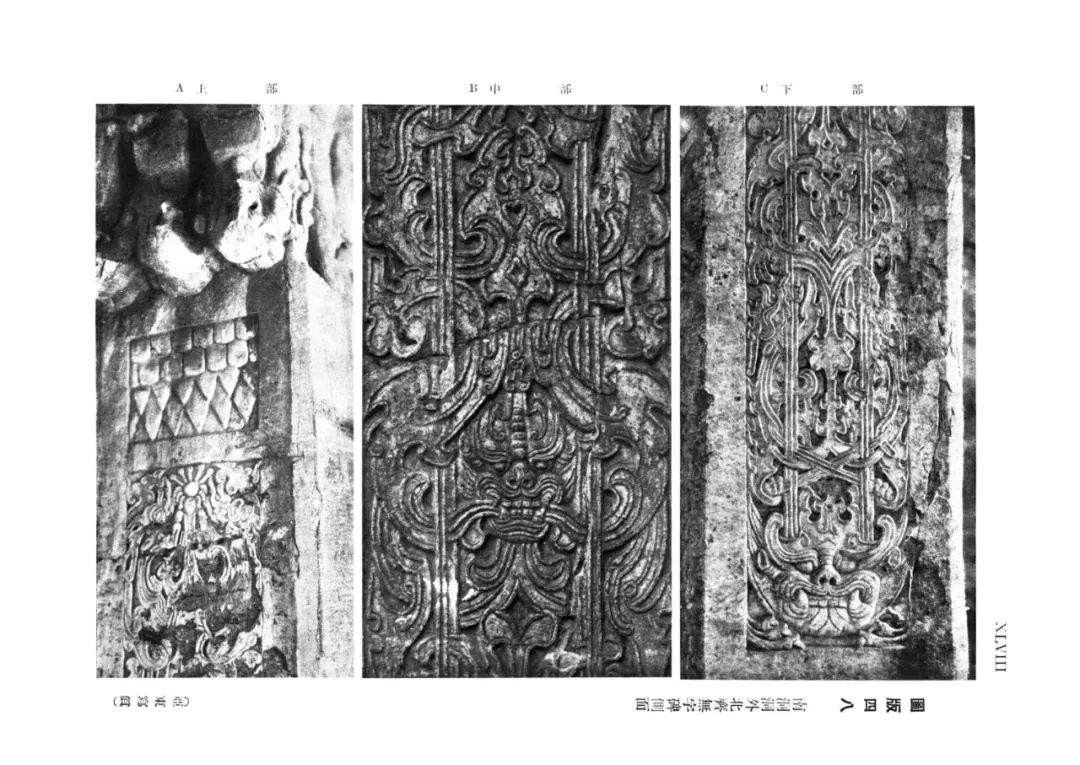 A 上部
B 中部
C 下部
XLVIII
圖版四八
南洞洞外北齊無字碑側面